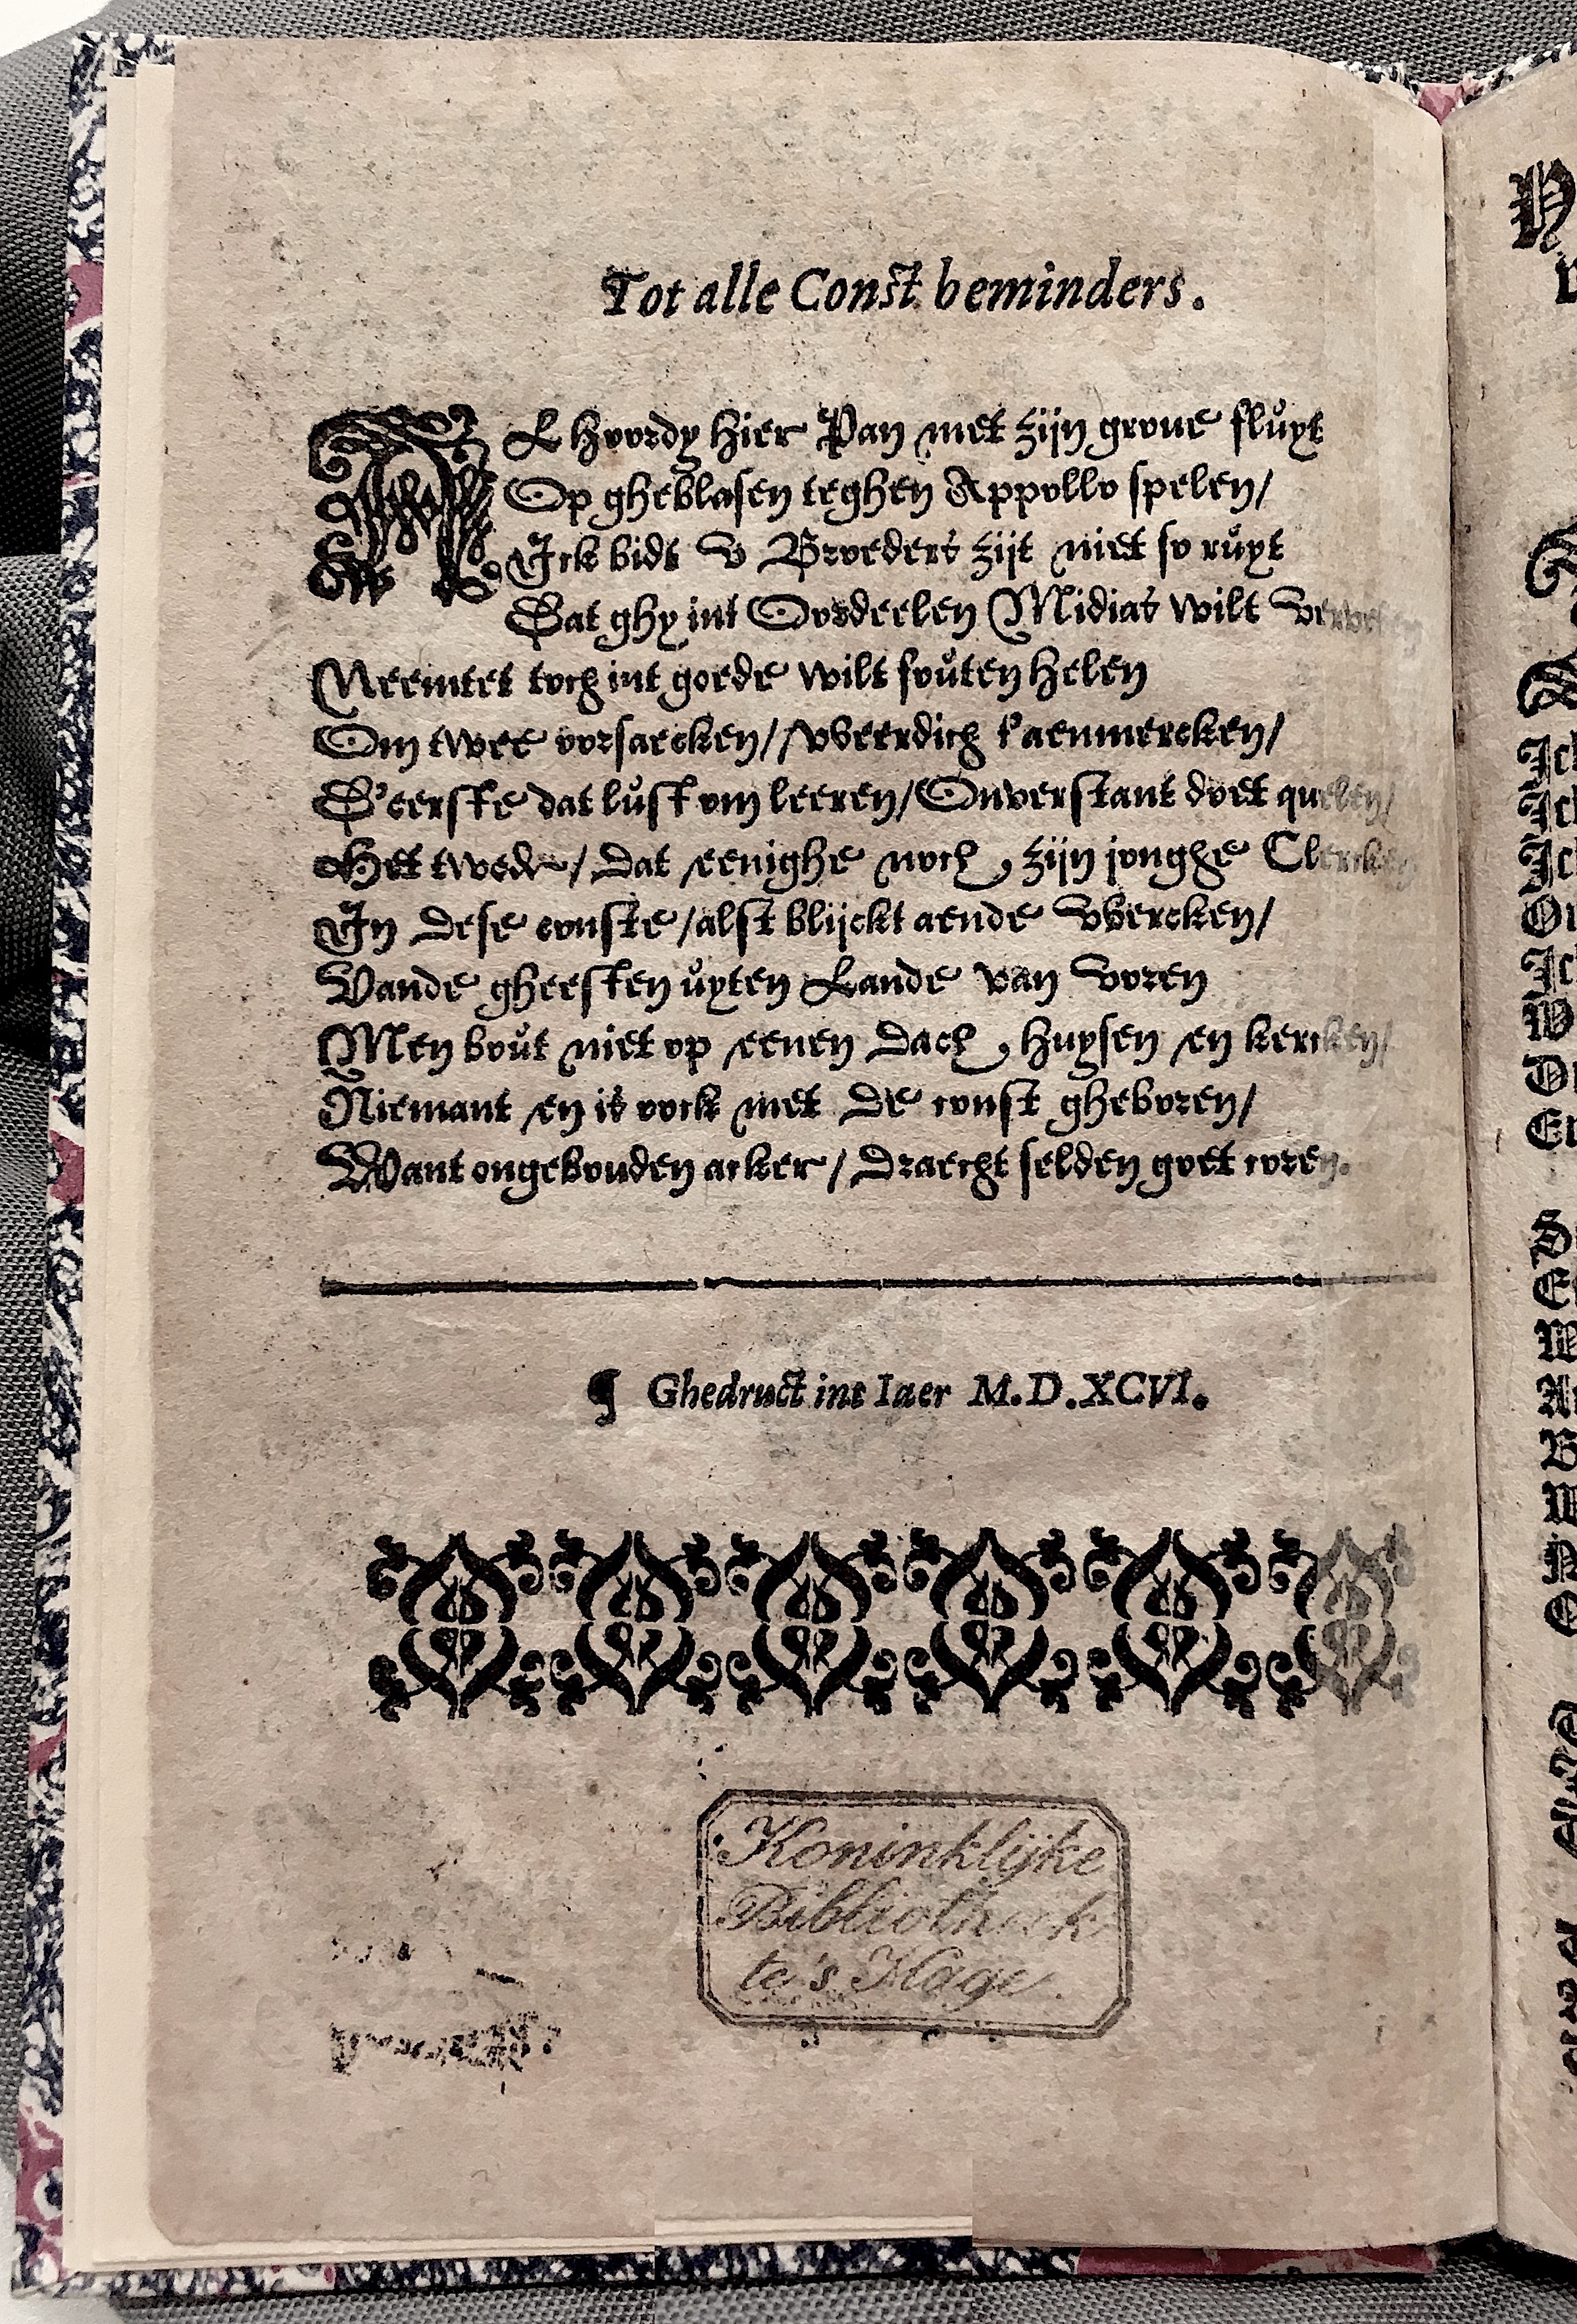 Tot alle Const beminders.
AL hoordy hier Pan met zijn groue fluyt
Op gheblasen teghen Appollo spelen/
Ick bids v Broeders zijt niet so ruyt
Dat ghy int Oordeelen Midias wilt
Neemtet toch int goede wilt fouten helen
Om twee oorsaecken/ weerdich t'aenmercken/
D'eerste dat lust om leeren/ Onverstant doet quelen/
Het twede/ dat eenighe noch, zijn jonghe Clercken
In dese conste/ alst blijckt aende wercken/
Vande gheesten uyten Lande van voren
Men bout niet op eenen dach, huysen en kercken/
Niemant en is oock met de const gheboren/
Want ongebouden acker/ draecht selden goet coren.
¶ Ghedruct int Iaer M.D.XCVI.
Koninklijke
Bibliotheek
te 's Hage.